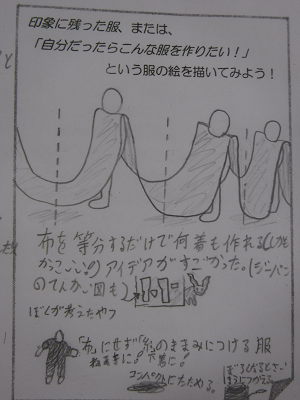 印象に残った服、または、
「自分だったらこんな服を作りたい！」
という服の絵を描いてみよう！
布を等分するだけで何着も作れる(しかも
かっこいい!)アイデアがすごかった。(ジーパン
のてんかい図も)
ぼくが考えたやつ
「布」にせず「糸」のままみにつける服
コンパクトにたためる。